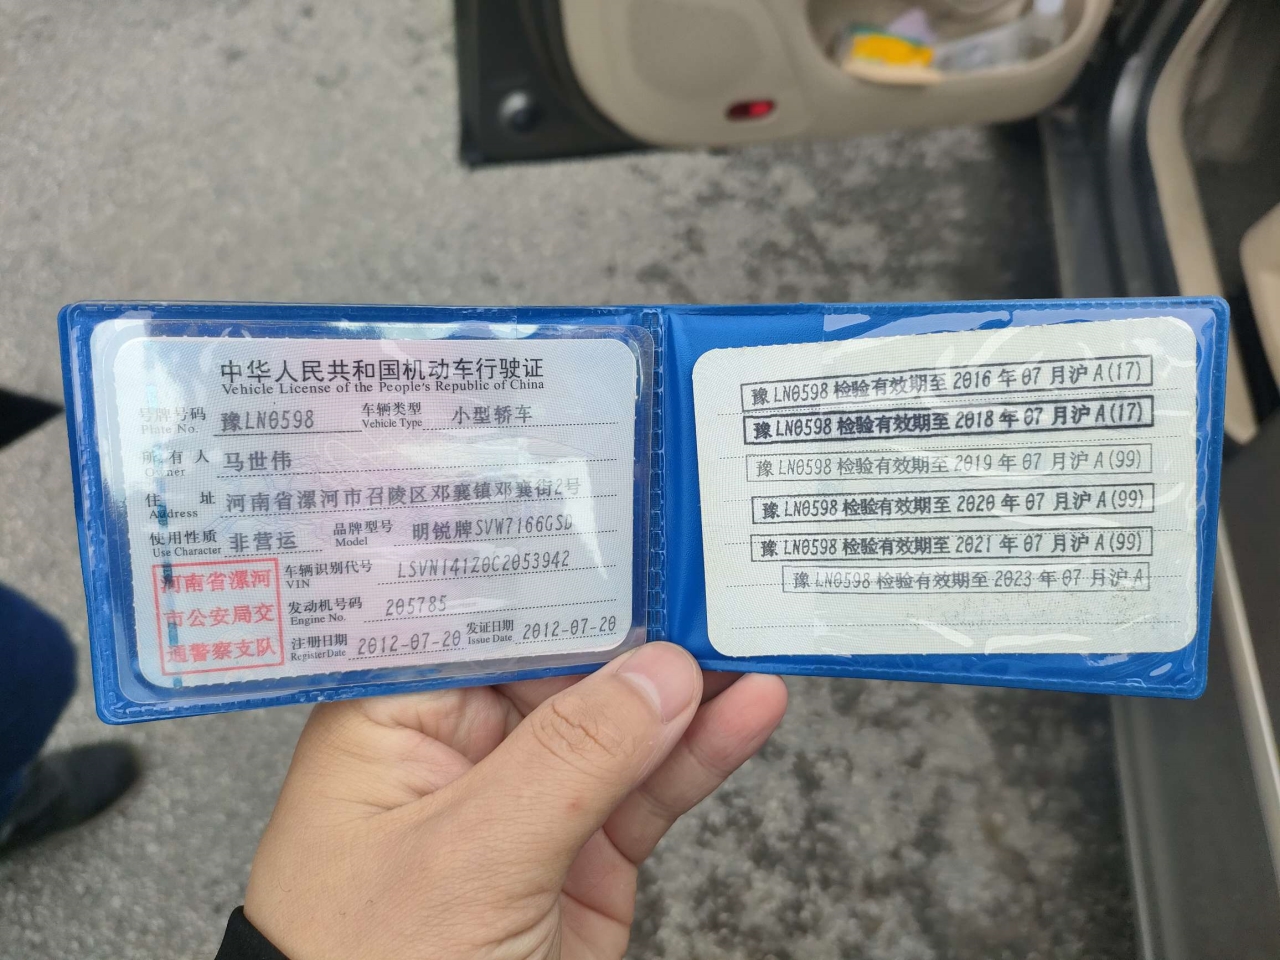 中华人民共和国机动车行驶证
Vehicle License of the People's Republic of China
号牌号码 豫LN0598 车辆类型 小型轿车
Plate No. Vehicle Type
所有人 马世伟
Owner
住址 河南省漯河市召陵区邓襄镇邓襄街2号
Address
使用性质 非营运 品牌型号 明锐牌SVW7166GSD
Use Character Model
车辆识别代号 LSVNI41Z0C2053942
VIN
发动机号码 205785
Engine No.
注册日期 2012-07-20 发证日期 2012-07-20
Register Date Issue Date
河南省漯河
市公安局交
通警察支队
豫LN0598 检验有效期至 2016 年 07 月沪 A(17)
豫LN0598 检验有效期至 2018 年 07 月沪 A(17)
豫LN0598 检验有效期至 2019 年 07 月沪 A(99)
豫LN0598 检验有效期至 2020 年 07 月沪 A(99)
豫LN0598 检验有效期至 2021 年 07 月沪 A(99)
豫LN0598 检验有效期至 2023 年 07 月沪 A